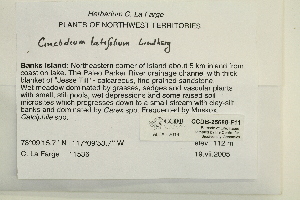 Herbarium C. La Farge
PLANTS OF NORTHWEST TERRITORIES
Cinclidium latifolium Lindberg
Banks Island: Northeastern corner of Island about 5 km inland from
coast on lake. The Paleo Parker River drainage channel with thick
blanket of "Jesse Till" - calcareous, fine grained sandstone.
Wet meadow dominated by grasses, sedges and vascular plants
with small, still pools, wet depressions and some raised soil
microsites which progresses down to a small stream with clay-silt
banks and dominated by Carex spp. Frequented by Muskox.
Catoscopium spp.
CCDB-25680 F11
elev. 112 m
C. La Farge 11536
19.vii.2005